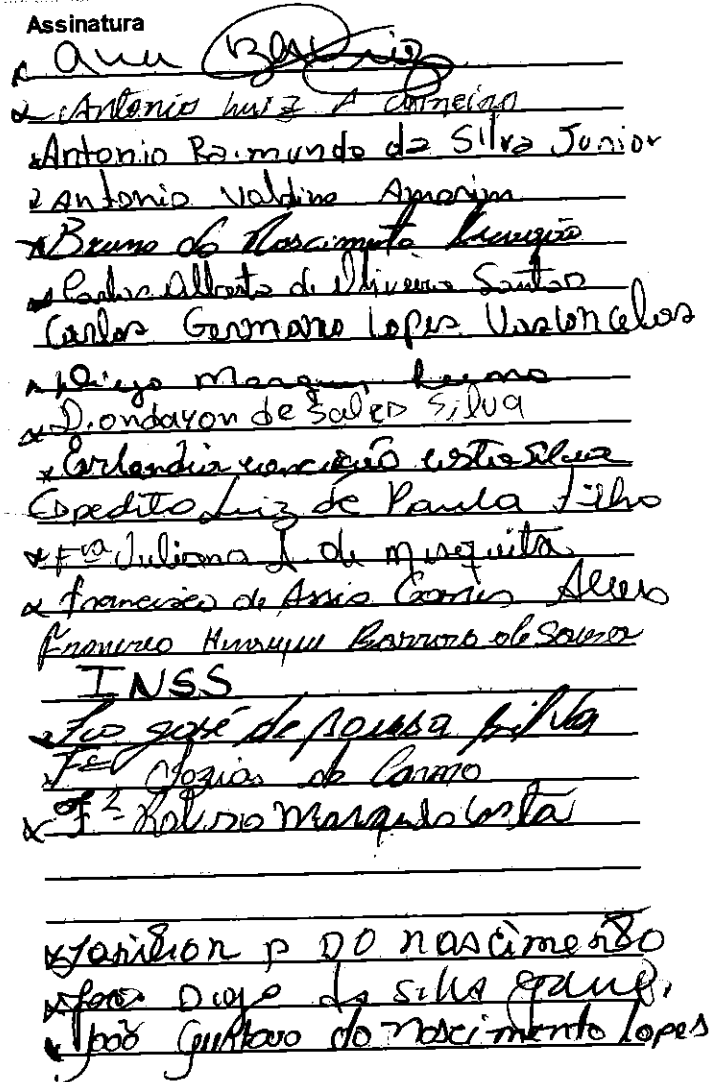 Assinatura
Ana
Antonio Luiz A Carneiro
Antonio Raimundo da Silva Junior
Antonio Valdino Amorim
Bruno do Nascimento
Carlos Alberto de Oliveira Santos
Carlos Germano Lopes Vasconcelos
Diego
Diondayon de Sales Silva
Erlandia conceição costa Silva
Expedito Luiz de Paula Filho
Fca Juliana de mesquita
francisco de Assis Gomes Alves
Francisco Henrique Barroso de Sousa
INSS
Fco José de Sousa Silva
do Carmo
Marques Costa
P DO nascimento
Diogo da Silva
João Gustavo do Nascimento Lopes